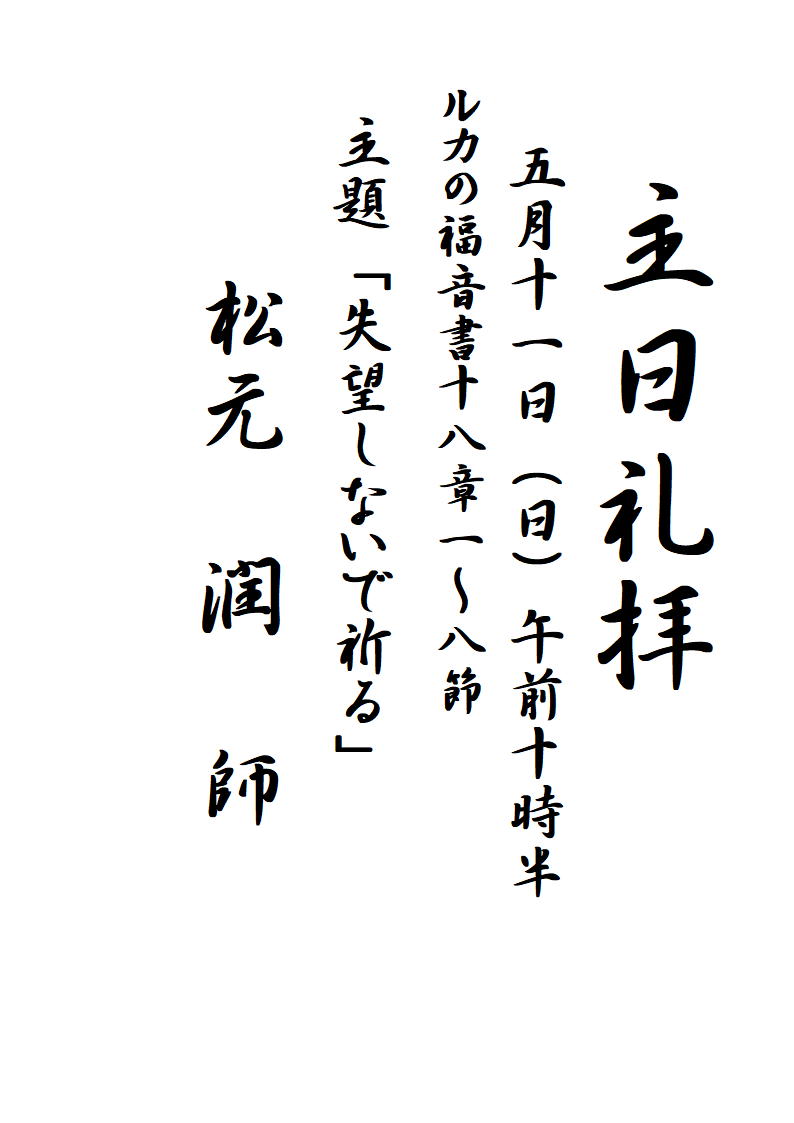 主日礼拝
五月十一日（日）午前十時半
ルカの福音書十八章一～八節
主題「失望しないで祈る」
松元　潤　師